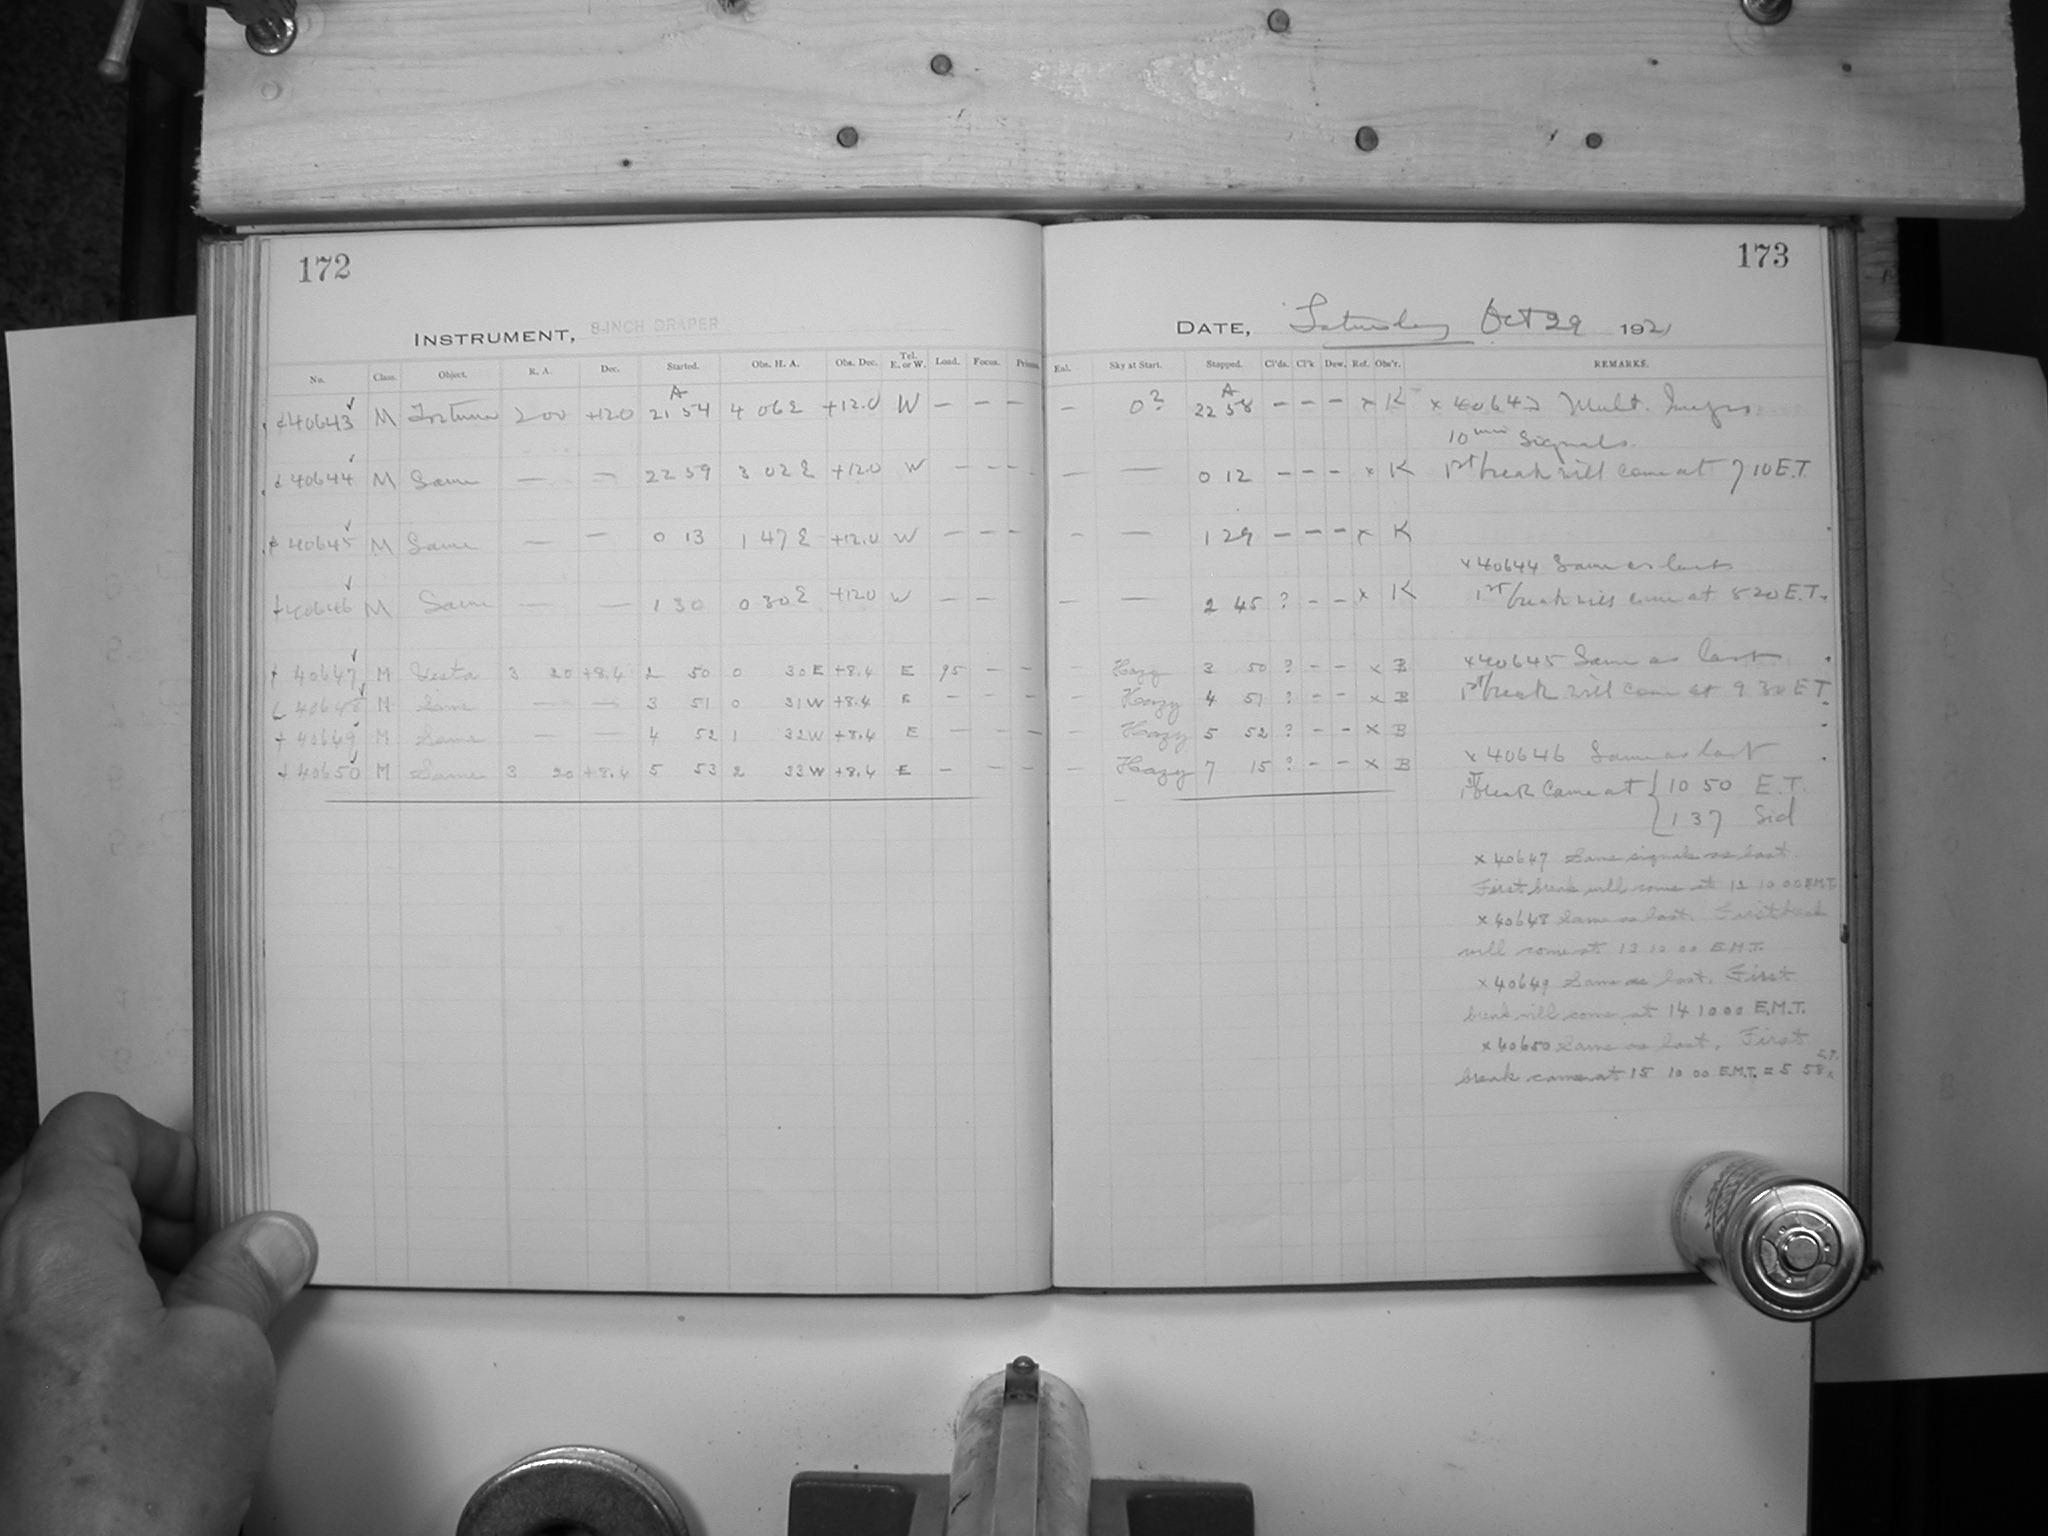 172
INSTRUMENT, 8-INCH DRAPER
No. Class. Object. R. A. Dec. Started. Obs. H. A. Obs. Dec. Tel. E. or W. Load. Focus. Prisms.
40643 M Fortuna 2 00 +12.0 A 21 54 4 06 E +12.0 W — — —
40644 M Same — — 22 59 3 02 E +12.0 W — — —
40645 M Same — — 0 13 1 47 E +12.0 W — — —
40646 M Same — — 1 30 0 30 E +12.0 W — —
40647 M Vesta 3 20 +8.4 2 50 0 30 E +8.4 E 95 — —
40648 M Same — — 3 51 0 31 W +8.4 E — — —
40649 M Same — — 4 52 1 32 W +8.4 E — — —
40650 M Same 3 20 +8.4 5 53 2 33 W +8.4 E — — —
173
DATE, Saturday Oct 29 1921
Enl. Sky at Start. Stopped. Cl'ds. Cl'k Dew. Ref. Obs'r. REMARKS.
— 0? A 22 58 — — — x K x 40643 Mult.
10 min Signals.
— — 0 12 — — — x K 1st break will come at 7 10 E.T.
— — 1 29 — — — x K
x 40644 Same as last
— — 2 45 ? — — x K 1st break will come at 8 20 E.T.
— Hazy 3 50 ? — — x B x 40645 Same as last
— Hazy 4 51 ? — — x B 1st break will come at 9 30 E T
— Hazy 5 52 ? — — x B
— Hazy 7 15 ? — — x B x 40646 Same as last
1st break came at { 10 50 E.T.
1 37 Sid
x 40647 Same signals as last.
First break will come at 12 10 00 E.M.T.
x 40648 Same as last. First break
will come at 13 10 00 E.M.T.
x 40649 Same as last. First
break will come at 14 10 00 E.M.T.
x 40650 Same as last. First
break came at 15 10 00 E.M.T. = 5 58 S.T.